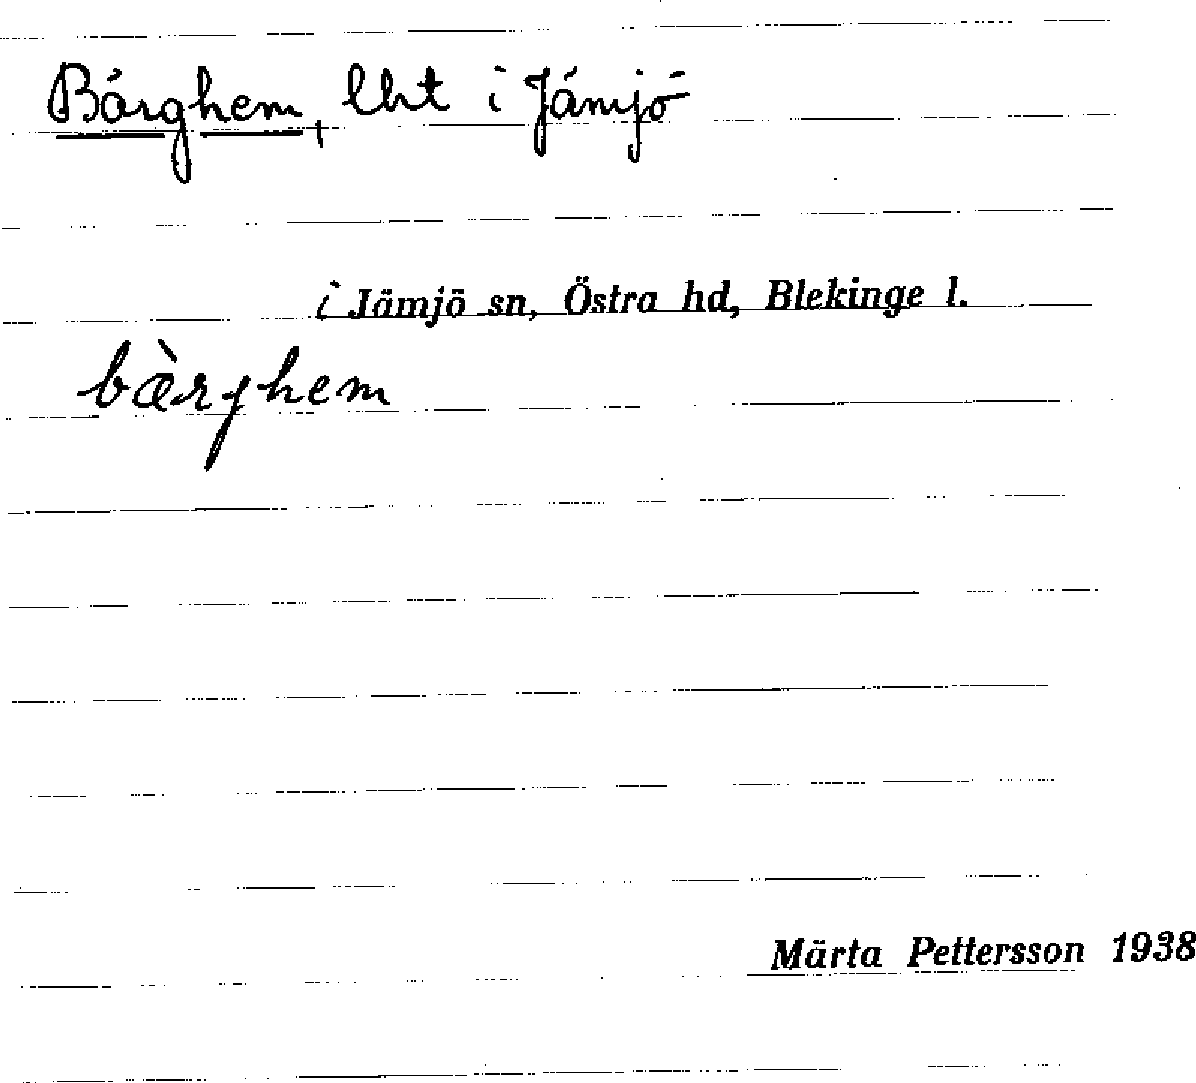 Bärghem, lht i Jämjö
i Jämjö sn, Östra hd, Blekinge l.
bæ̀rghem
Märta Pettersson 1938